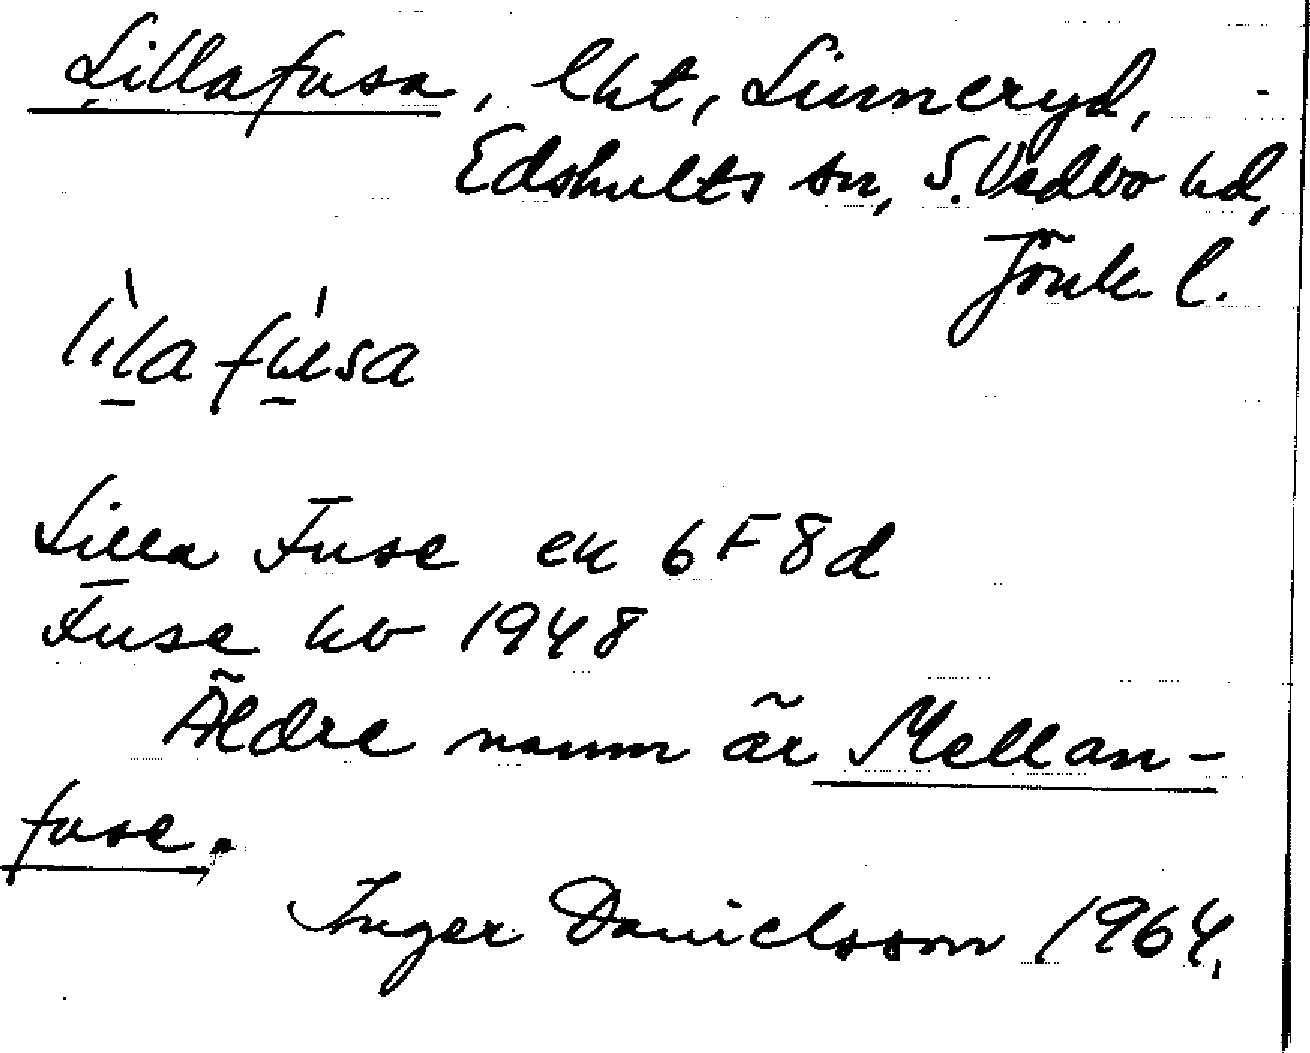 Lillafusa, lht, Linneryd,
Edshults sn, S. Vedbo hd,
Jönk. l.
lìlafu̍sa
Lilla Fuse ek 6F8d
Fuse kb 1948
Äldre namn är Mellan-
fuse.
Inger Danielsson 1964.